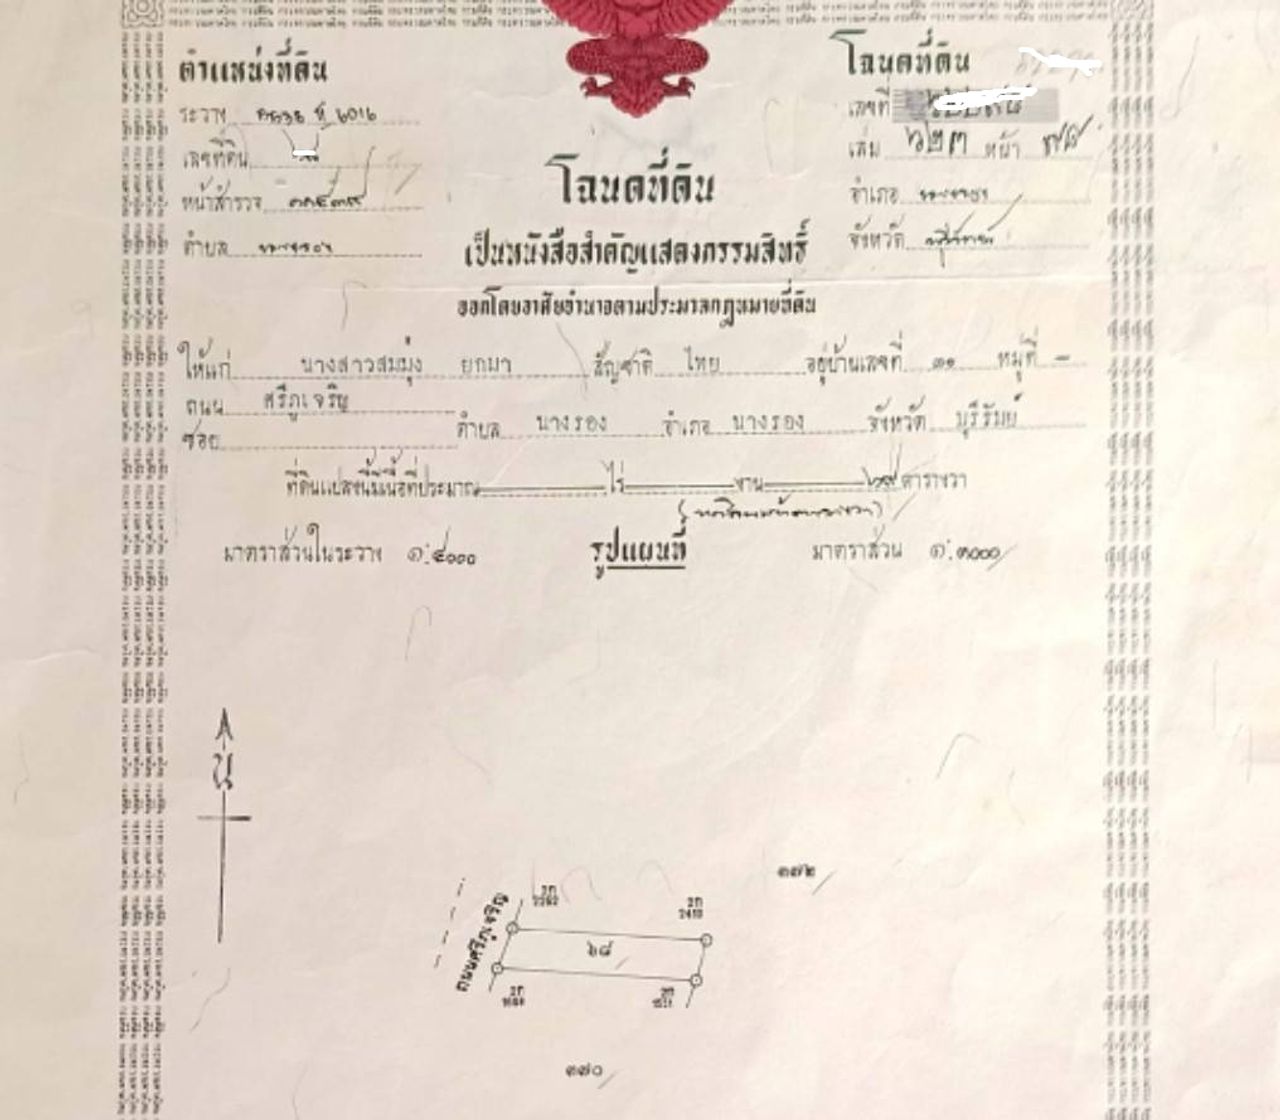 ตำแหน่งที่ดิน
โฉนดที่ดิน
ระวาง
เลขที่
เลขที่ดิน
เล่ม ๖๒๓ หน้า
หน้าสำรวจ
โฉนดที่ดิน
อำเภอ นางรอง
ตำบล นางรอง
เป็นหนังสือสำคัญแสดงกรรมสิทธิ์
จังหวัด บุรีรัมย์
ออกโดยอาศัยอำนาจตามประมวลกฎหมายที่ดิน
ให้แก่ นางสาวสมมุ่ง ยกมา สัญชาติ ไทย อยู่บ้านเลขที่ หมู่ที่ -
ถนน ศรีภูเจริญ
ซอย ตำบล นางรอง อำเภอ นางรอง จังหวัด บุรีรัมย์
ที่ดินแปลงนี้มีเนื้อที่ประมาณ ไร่ งาน ๖๙ ตารางวา
(หกสิบเก้าตารางวา)
มาตราส่วนในระวาง ๑:๔๐๐๐ รูปแผนที่ มาตราส่วน ๑:๑๐๐๐
น
๓๗๒
ถนนศรีภูเจริญ
๖๘
๓๗๐